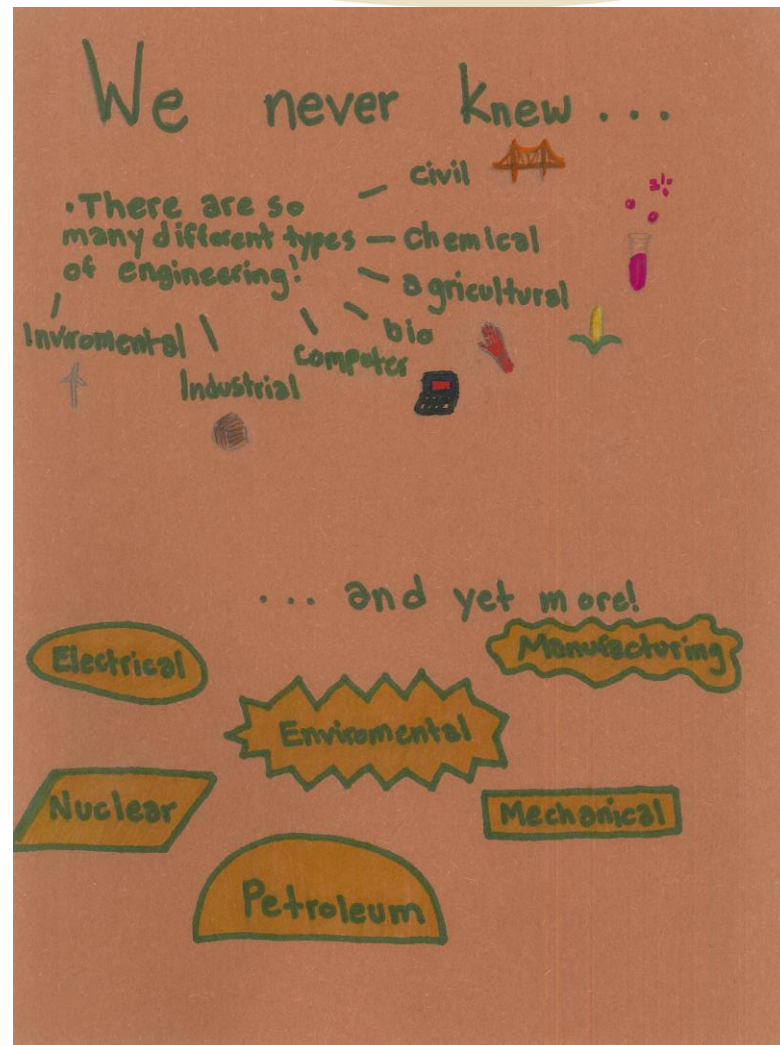 We never knew...
• There are so
many different types
of engineering!
civil
chemical
agricultural
bio
computer
Industrial
Inviromental
... and yet more!
Electrical
Manufacturing
Enviromental
Nuclear
Mechanical
Petroleum